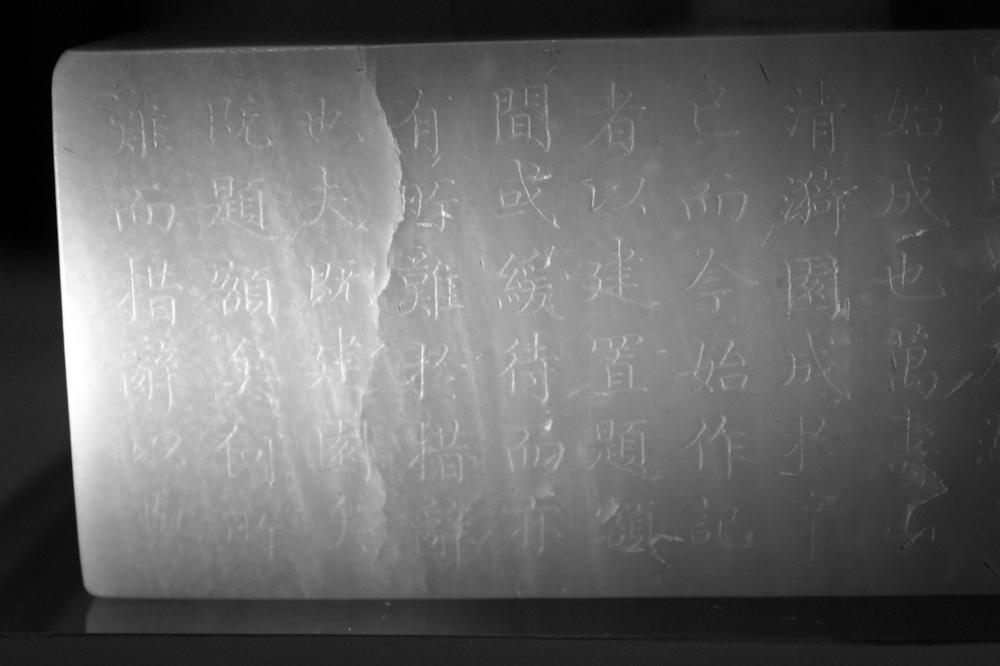 始成也萬壽山
清漪園成於辛
巳而今始作記
者以建置題額
間或緩待而亦
有所難於措辭
也夫既建園矣
既題額矣何所
難而措辭以與